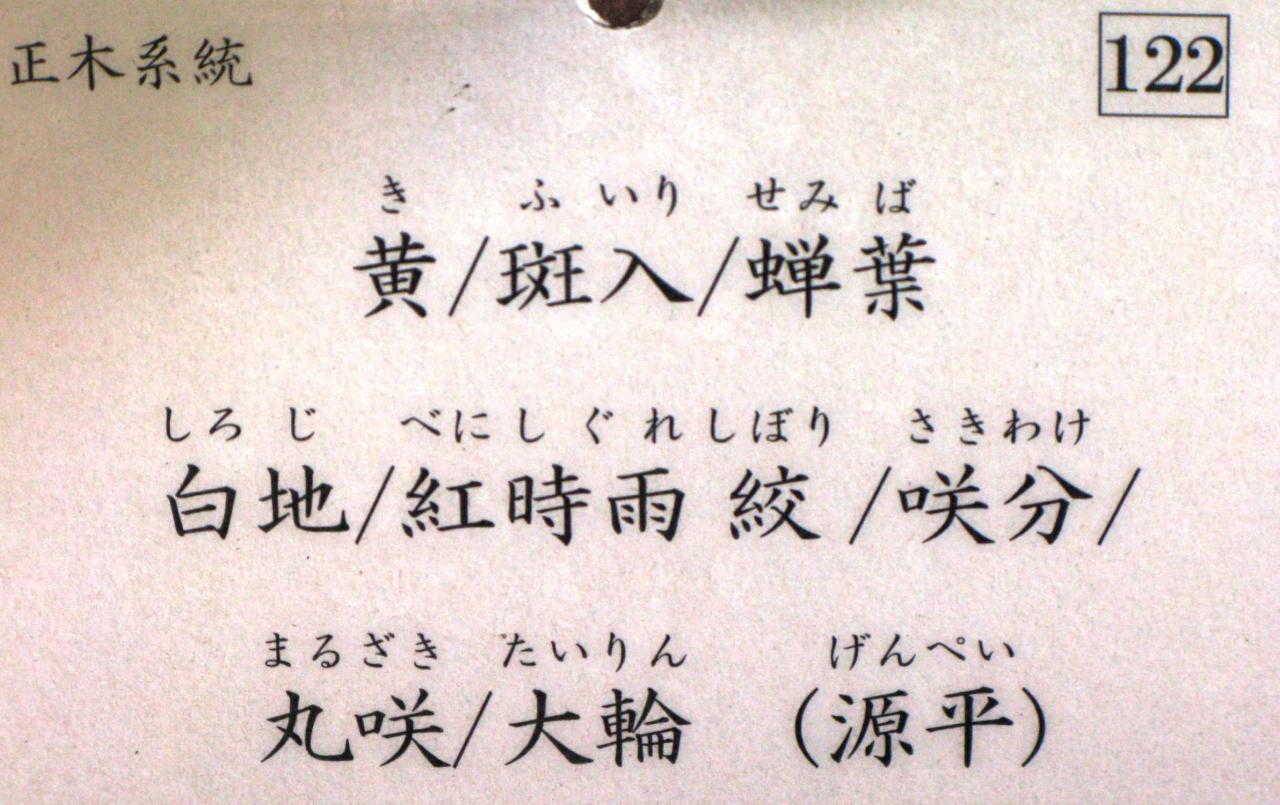 正木系統
122
き ふ いり せみ ば
黄/斑入/蝉葉
しろ じ べに し ぐ れ しぼり さきわけ
白地/紅時雨 絞 /咲分/
まるざき たいりん げんぺい
丸咲/大輪 (源平)